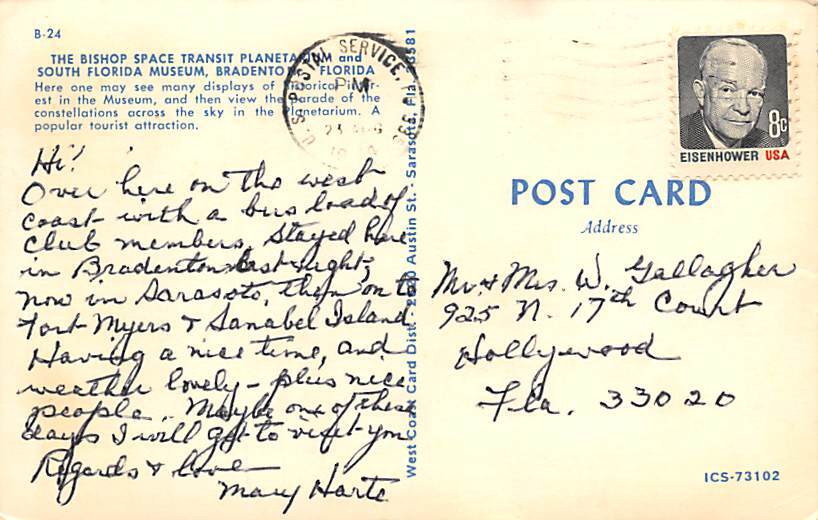 B-24
THE BISHOP SPACE TRANSIT PLANETARIUM and
SOUTH FLORIDA MUSEUM, BRADENTON, FLORIDA
Here one may see many displays of historical inter-
est in the Museum, and then view the parade of the
constellations across the sky in the Planetarium. A
popular tourist attraction.
Hi!
Over here on the west
coast with a bus load of
club members. Stayed here
in Bradenton last night,
now in Sarasota, then on to
Fort Myers & Sanabel Island
Having a nice time, and
weather lovely - plus nice
people. Maybe one of these
days I will get to visit you
Regards & love
Mary Harte
West Coast Card Dist. - Austin St. - Sarasota, Fla. 33581
U.S. POSTAL SERVICE, FL
PM
23 AUG
EISENHOWER USA
8c
POST CARD
Address
Mr. & Mrs. W. Gallagher
925 N. 17th Court
Hollywood
Fla. 33020
ICS-73102